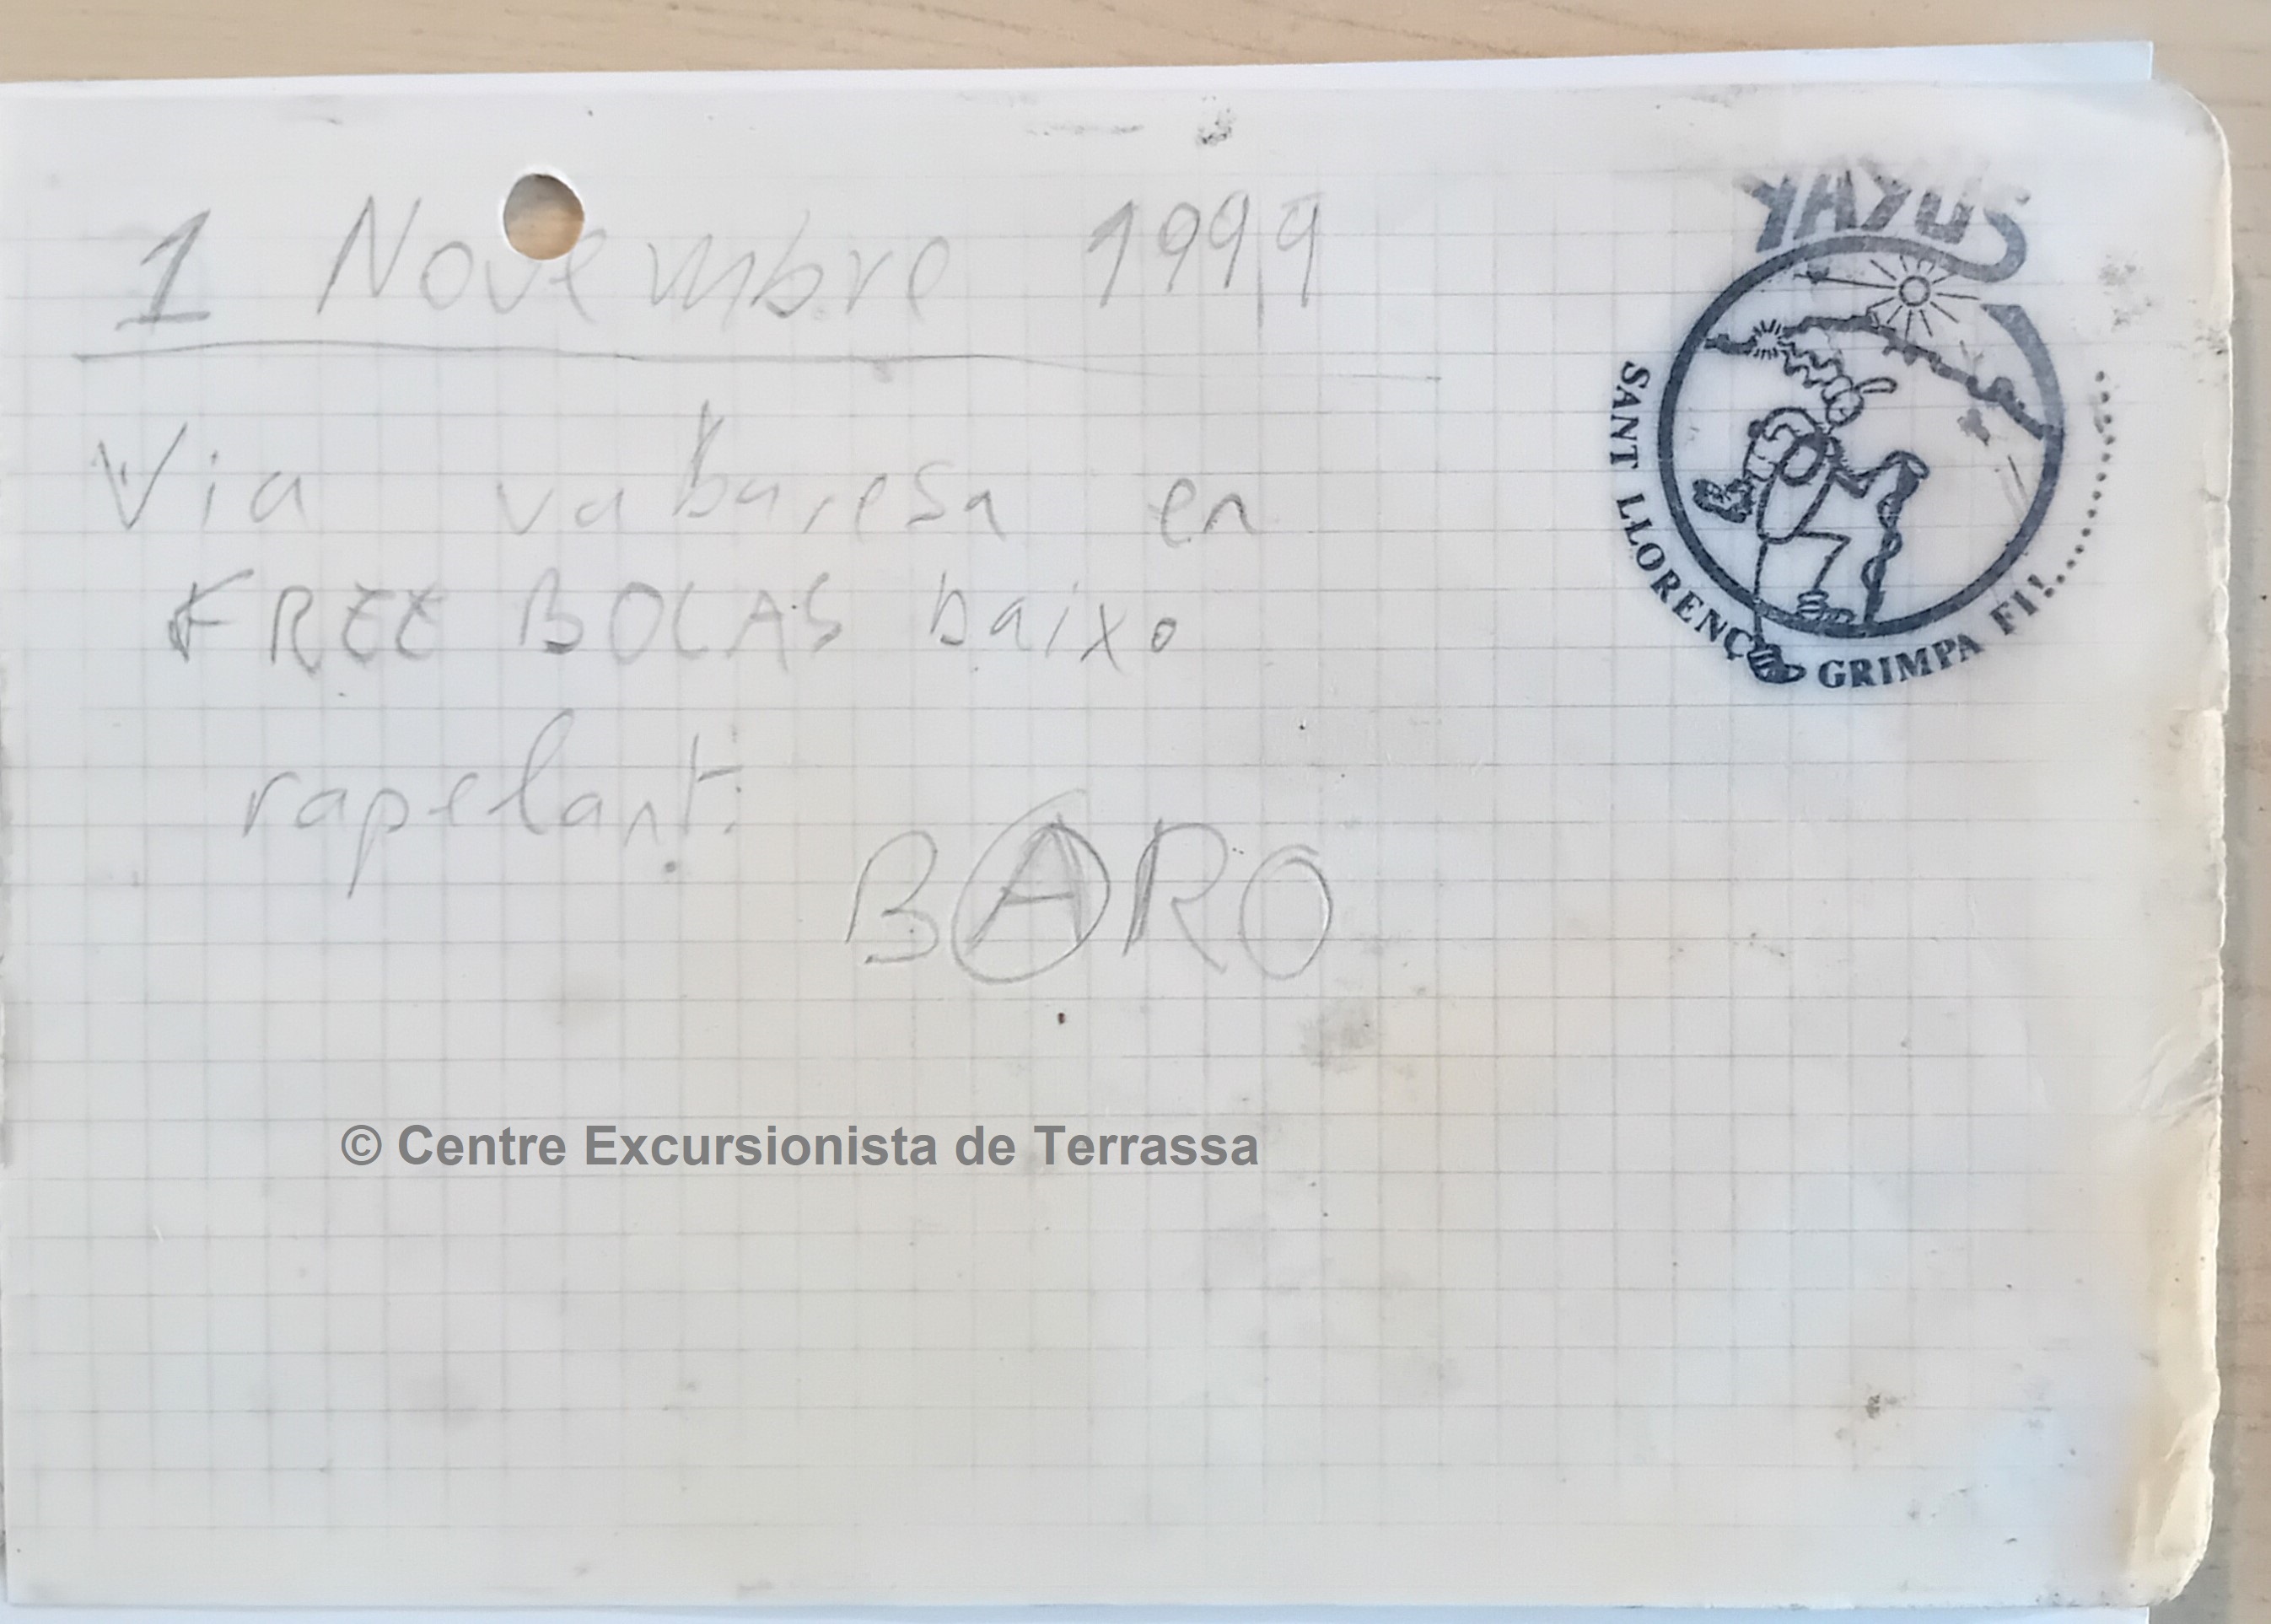 1 Novembre 1999
Via vabaresa en
FREE BOLAS baixo
rapelant.
BARO
YAYUS
SANT LLORENÇ GRIMPA FI!..............
© Centre Excursionista de Terrassa